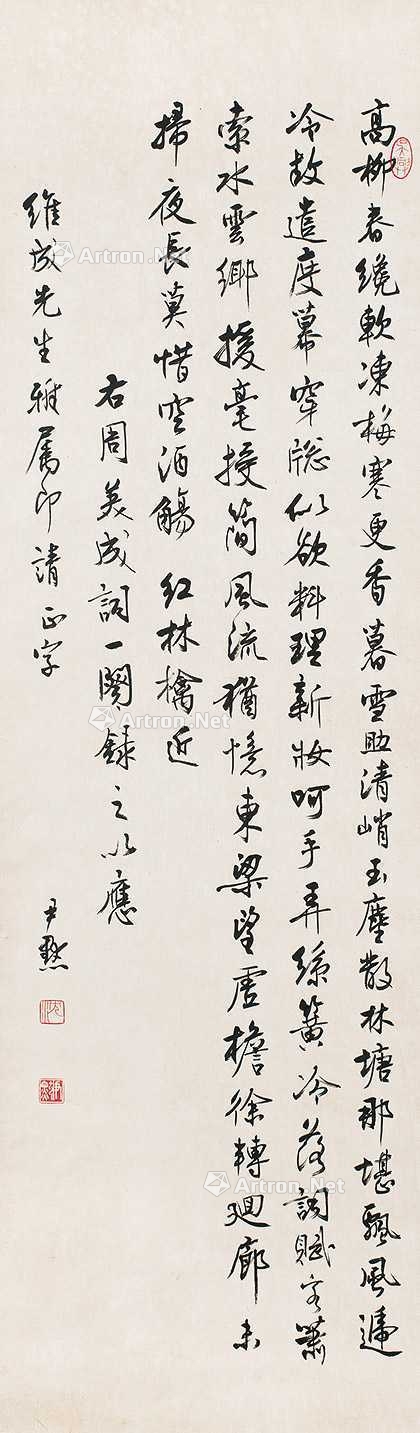 高柳春纔軟凍梅寒更香暮雪助清峭玉塵散林塘那堪飄風遞
冷故遣度幕穿牕似欲料理新妝呵手弄絲簧冷落詞賦客蕭
索水雲鄉援毫授簡風流猶憶東梁望虛檐徐轉廻廊未
掃夜長莫惜空酒觴 紅林檎近
右周美成詞一闋錄之以應
維成先生雅屬即請正字
尹默
Artron.Net
Artron.Net
Artron.Net
Artron.Net
Artron.Net
Artron.Net